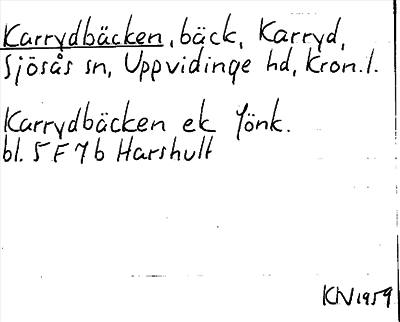 Karrydbäcken, bäck, Karryd,
Sjösås sn, Uppvidinge hd, Kron. l.
Karrydbäcken ek Jönk.
bl. 5 F 7 b Harshult
KN 1959